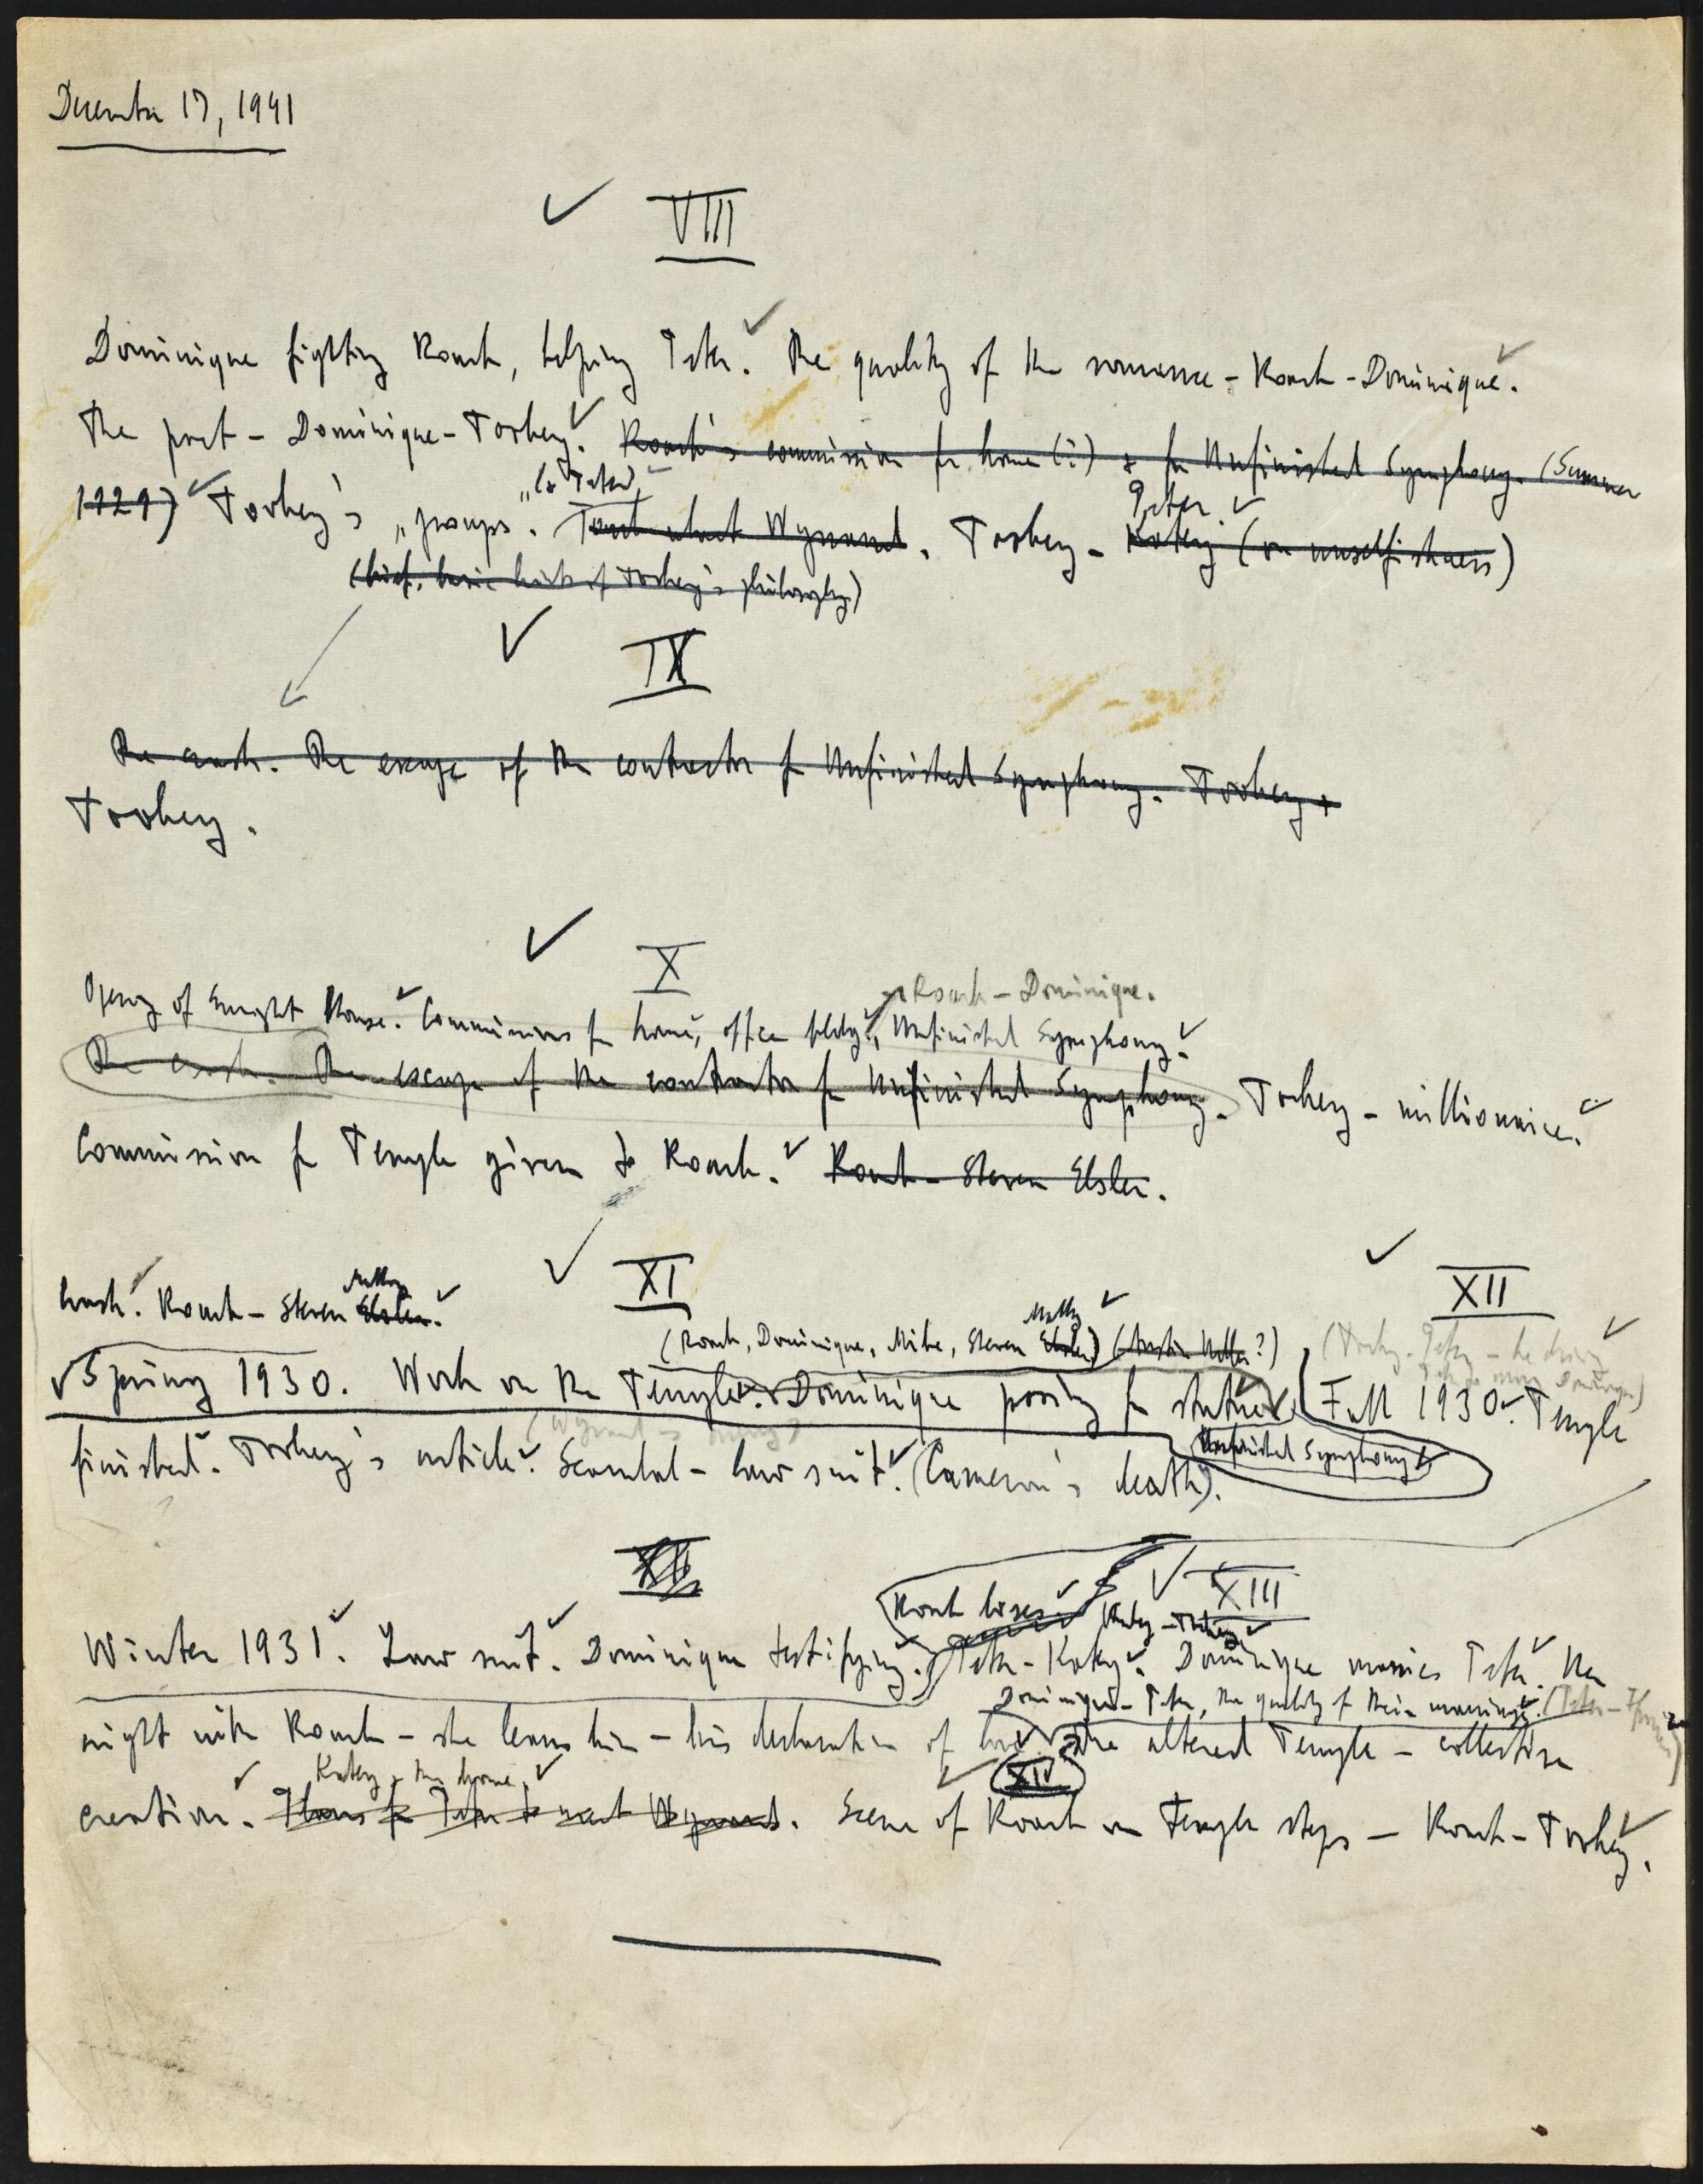 December 17, 1941
VIII
Dominique fighting Roark, helping Peter. The quality of the romance - Roark - Dominique.
The pact - Dominique - Toohey. Roark's commission for home (?) & for Unfinished Symphony. (Summer
1929) Toohey's "groups". Toohey - Peter. Katey (on unselfishness)
(brief, basic hints of Toohey's philosophy)
IX
The crash. The escape of the contractor for Unfinished Symphony. Toohey +
Toohey.
X
Roark - Dominique.
Opening of Enright House. Commissions for home, office bldg., Unfinished Symphony.
The crash. The escape of the contractor for Unfinished Symphony. Toohey - millionaire.
Commission for Temple given to Roark. Roark - Steven Elsler.
XI
XII
Crash. Roark - Steven Mallory Elsler.
(Roark, Dominique, Mike, Steven Mallory Elsler) (Austin Heller?)
Spring 1930. Work on the Temple. Dominique posing for statue. Fall 1930. Temple
Unfinished Symphony
finished. Toohey's article. Scandal - law suit. (Cameron's death).
XII
XIII
Roark loses Katey - Toohey
Winter 1931. Law suit. Dominique testifying. Peter - Katey. Dominique marries Peter. Her
Dominique - Peter, the quality of their marriage.
night with Roark - she leaves him - his declaration of love. The altered Temple - collective
XIV
Katey & the home.
creation. Plans for Peter to meet Wynand. Scene of Roark on Temple steps - Roark - Toohey.